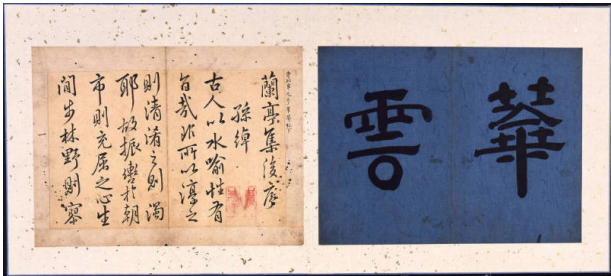 華雲
蘭亭集後序
孫綽
古人以水喻性有
旨哉非所以渟之
則清淆之則濁
耶故振轡於朝
市則充屈之心生
閒步林野則寥